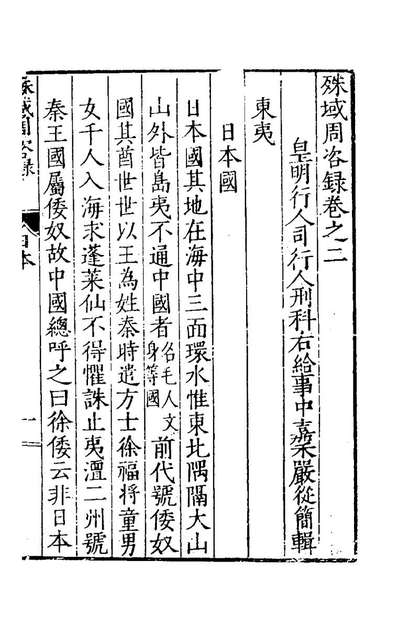 殊域周咨錄卷之二
皇明行人司行人刑科右給事中嘉禾嚴從簡輯
東夷
日本國
日本國其地在海中三面環水惟東北隅隔大山
山外皆島夷不通中國者名毛人文身等國前代號倭奴
國其酋世世以王為姓秦時遣方士徐福將童男
女千人入海求蓬莱仙不得懼誅止夷澶二州號
秦王國屬倭奴故中國總呼之曰徐倭云非日本
殊域周咨錄
日本
一